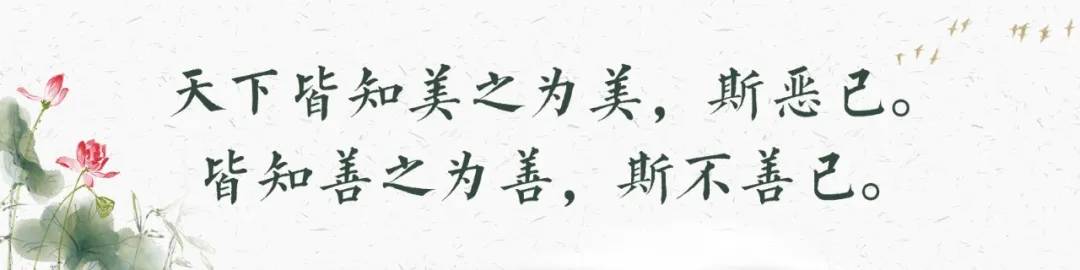 天下皆知美之为美，斯恶已。
皆知善之为善，斯不善已。